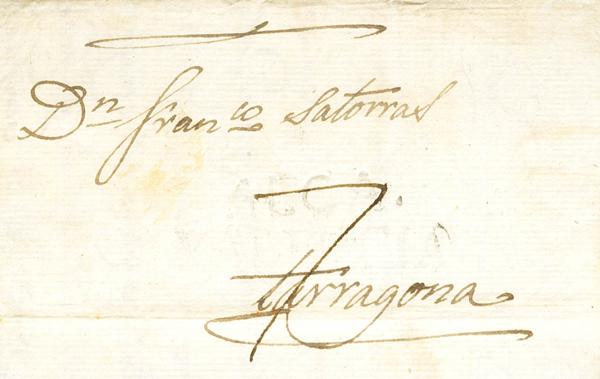 Dn Franco Satorras
Tarragona